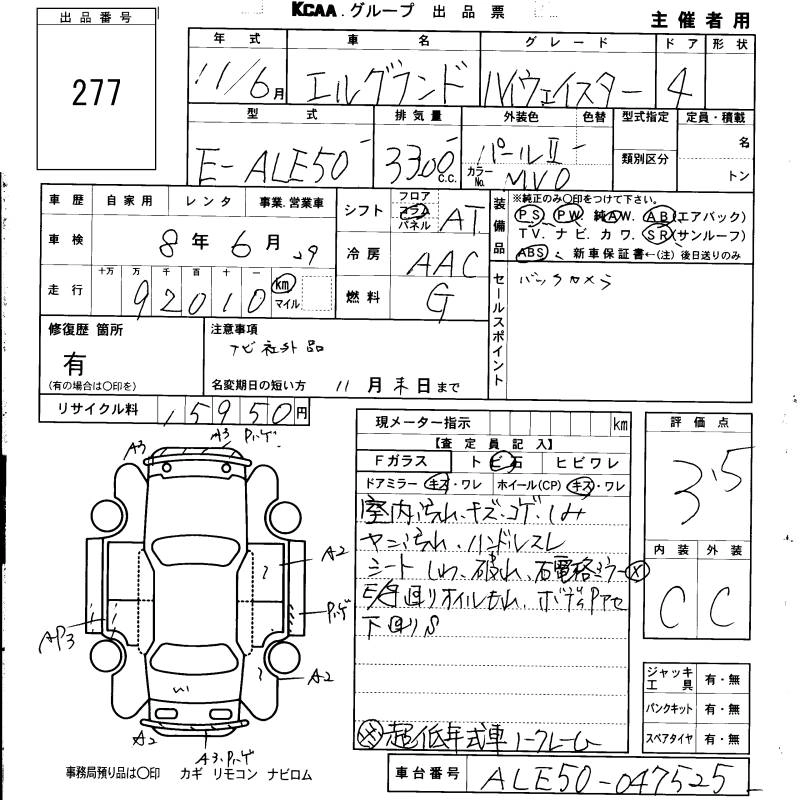 KCAA.グループ 出品票
主催者用
出品番号
277
年式 車名 グレード ドア 形状
11/6月 エルグランド ハイウェイスター 4
型式 排気量 外装色 色替 型式指定 定員・積載
E-ALE50 3300 c.c. パールⅡ
カラーNo. MV0
類別区分
名
トン
車歴 自家用 レンタ 事業.営業車
車検 8年 6月 29
走行 十万 万 千 百 十 一
92010 km マイル
シフト フロア コラム パネル AT
冷房 AAC
燃料 G
装備品
※純正のみ〇印をつけて下さい。
PS PW 純AW. AB(エアバック)
TV. ナビ. カワ. SR(サンルーフ)
ABS 新車保証書←(注) 後日送りのみ
セールスポイント
バックカメラ
修復歴 箇所
有
(有の場合は〇印を)
注意事項
ナビ社外品
名変期日の短い方 11月末日まで
リサイクル料 15950円
現メーター指示 km
【査定員記入】
Fガラス トビ石 ヒビワレ
ドアミラー キズ・ワレ ホイール(CP) キズ・ワレ
室内汚れ.キズ.コゲ.しみ
ヤニ汚れ.ハンドルスレ
シート しわ.破れ.右電格ミラー×
下回りS
超低年式車 ノークレーム
評価点
3.5
内装 外装
C C
ジャッキ工具 有・無
パンクキット 有・無
スペアタイヤ 有・無
A3
A3
A2
AP3
A2
A2
事務局預り品は〇印 カギ リモコン ナビロム
車台番号 ALE50-047525